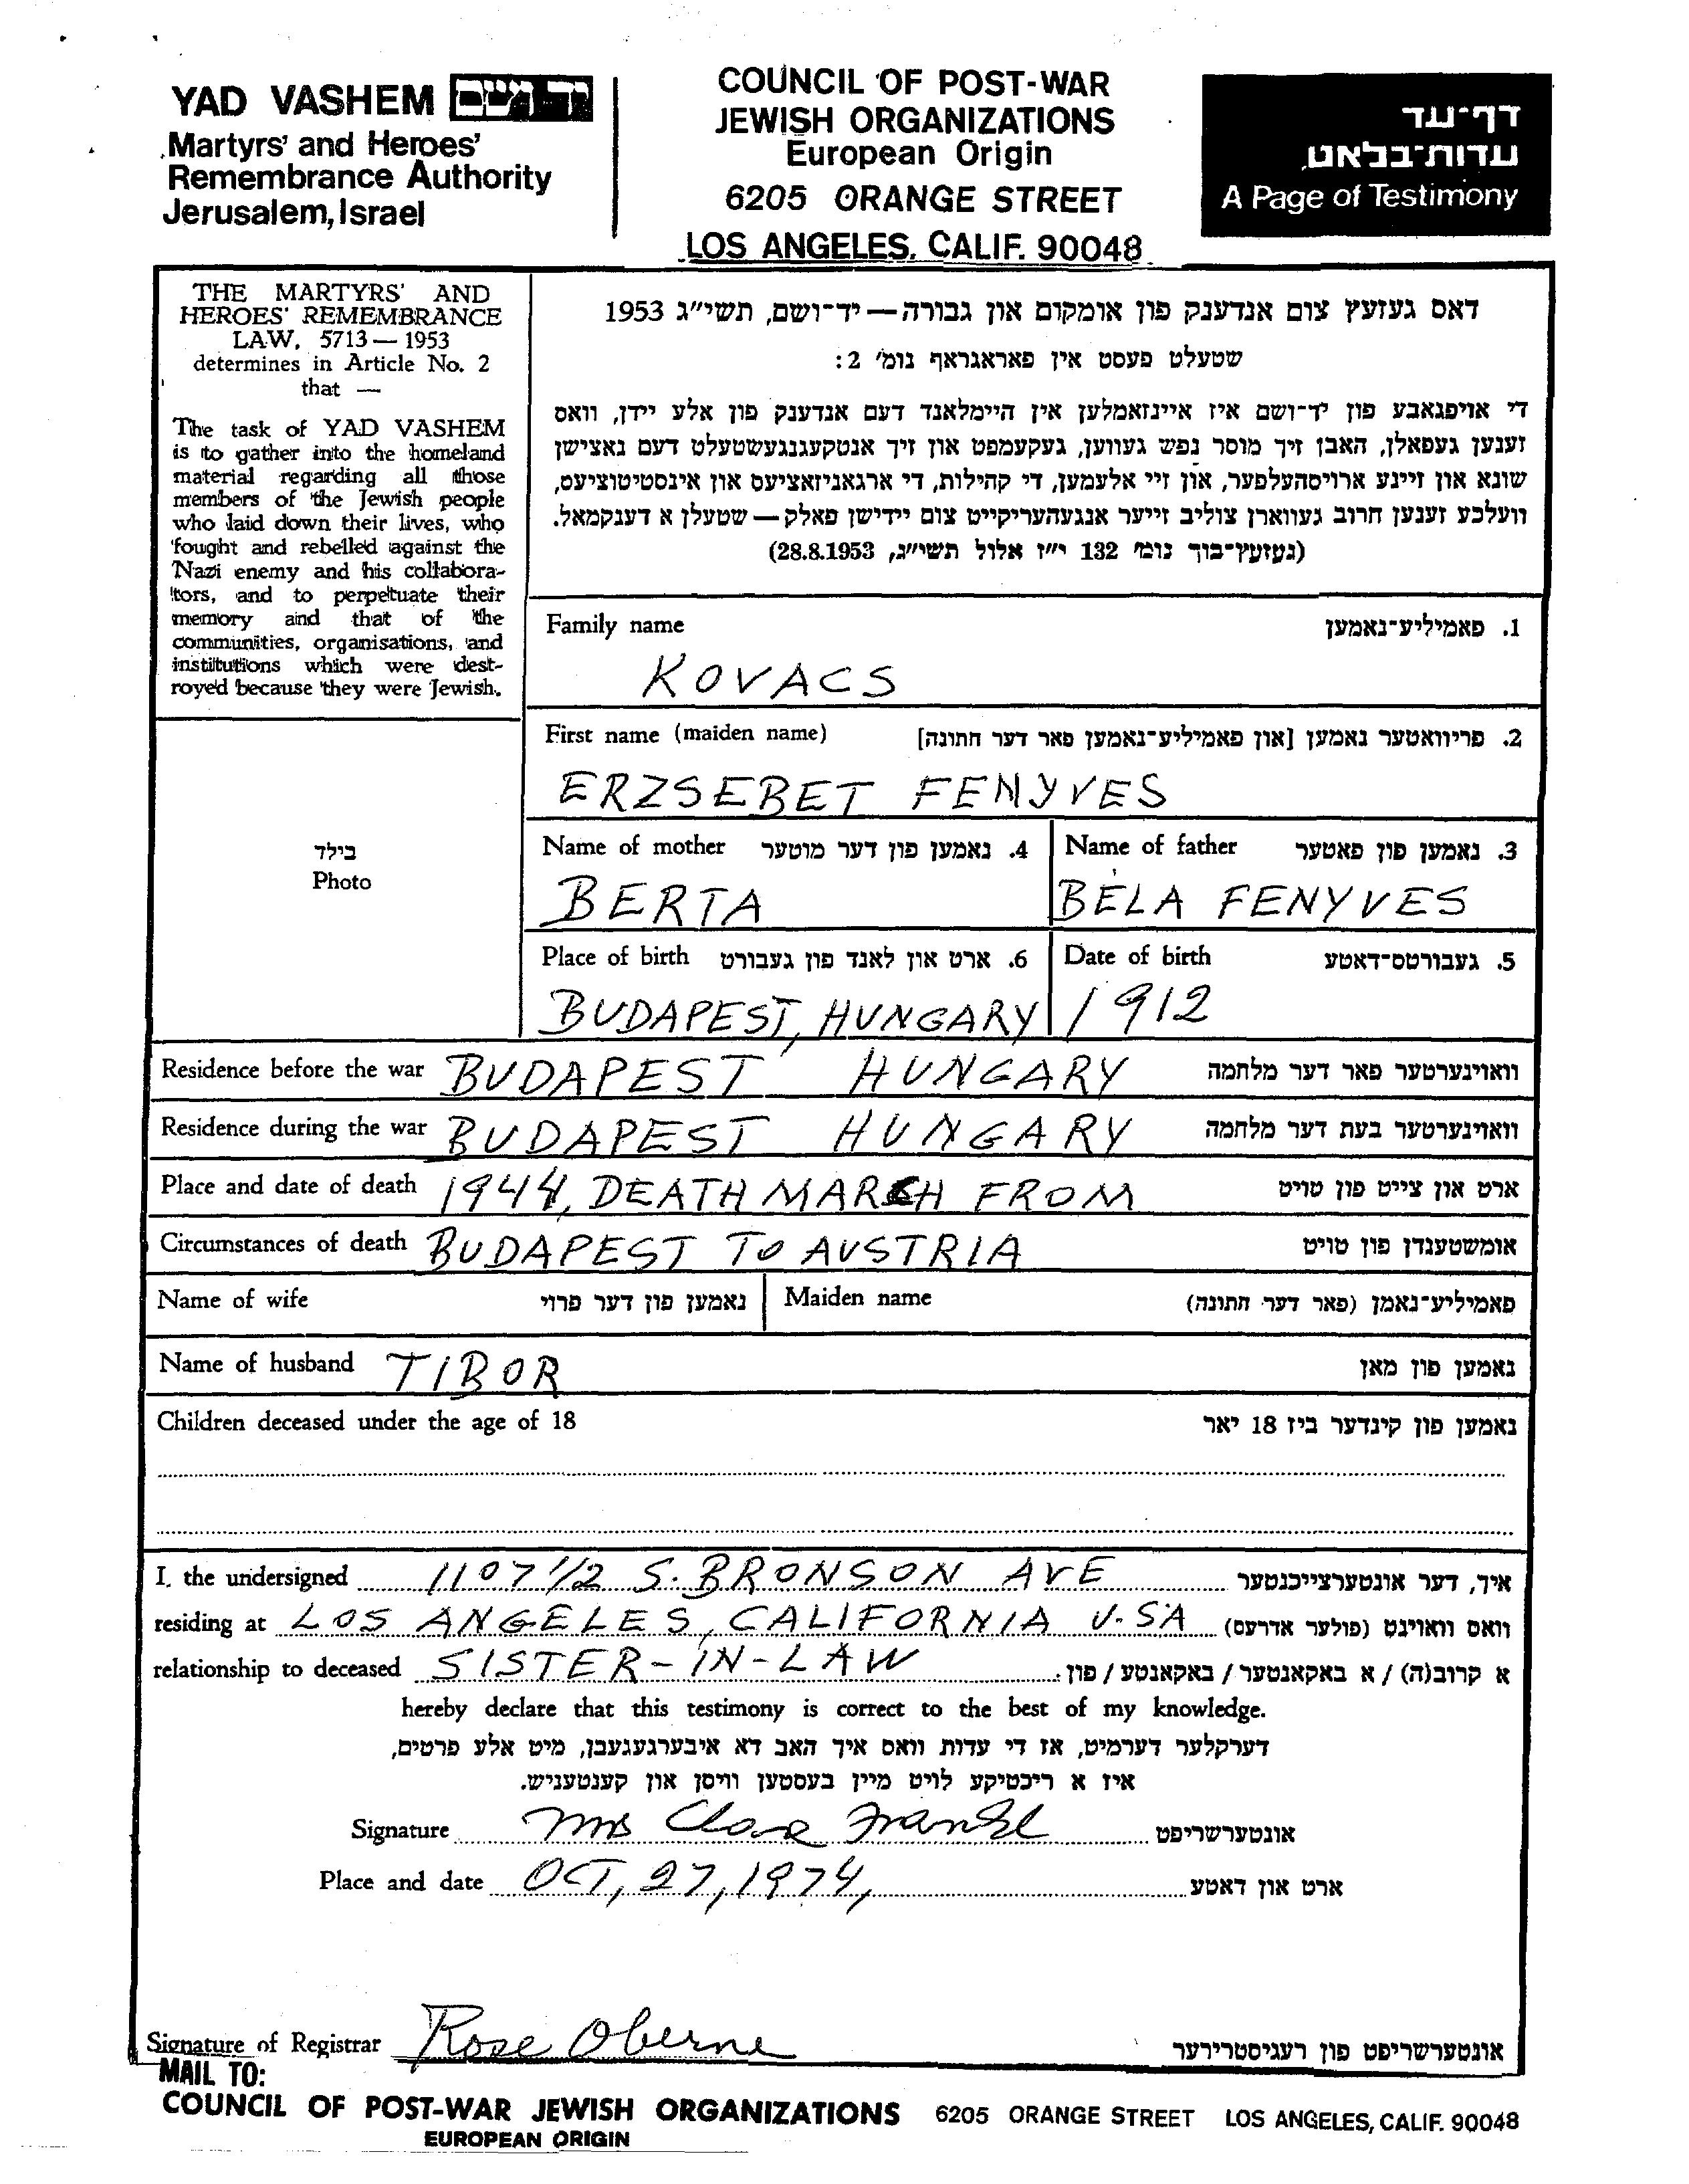 YAD VASHEM יד ושם
Martyrs' and Heroes'
Remembrance Authority
Jerusalem, Israel
COUNCIL OF POST-WAR
JEWISH ORGANIZATIONS
European Origin
6205 ORANGE STREET
LOS ANGELES, CALIF. 90048
דף-עד
עדות-בלאט
A Page of Testimony
THE MARTYRS' AND
HEROES' REMEMBRANCE
LAW, 5713 — 1953
determines in Article No. 2
that —
The task of YAD VASHEM
is to gather into the homeland
material regarding all those
members of the Jewish people
who laid down their lives, who
fought and rebelled against the
Nazi enemy and his collabora-
tors, and to perpetuate their
memory and that of the
communities, organisations, and
institutions which were dest-
royed because they were Jewish.
דאס געזעץ צום אנדענק פון אומקום און גבורה — יד-ושם, תשי"ג 1953
שטעלט פעסט אין פאראגראף נומ' 2:
די אויפגאבע פון יד-ושם איז איינזאמלען אין היימלאנד דעם אנדענק פון אלע יידן, וואס
זענען געפאלן, האבן זיך מוסר נפש געווען, געקעמפט און זיך אנטקעגנגעשטעלט דעם נאצישן
שונא און זיינע ארויסהעלפער, און זיי אלעמען, די קהילות, די ארגאניזאציעס און אינסטיטוציעס,
וועלכע זענען חרוב געווארן צוליב זייער אנגעהעריקייט צום יידישן פאלק — שטעלן א דענקמאל.
(געזעץ-בוך נומ' 132 י"ז אלול תשי"ג, 28.8.1953)
Family name 1. פאמיליע-נאמען
KOVACS
First name (maiden name) 2. פריוואטער נאמען [און פאמיליע-נאמען פאר דער חתונה]
ERZSEBET FENYVES
Name of mother 4. נאמען פון דער מוטער Name of father 3. נאמען פון פאטער
BERTA BÉLA FENYVES
Place of birth 6. ארט און לאנד פון געבורט Date of birth 5. געבורטס-דאטע
BUDAPEST, HUNGARY 1912
בילד
Photo
Residence before the war BUDAPEST HUNGARY וואוינערטער פאר דער מלחמה
Residence during the war BUDAPEST HUNGARY וואוינערטער בעת דער מלחמה
Place and date of death 1944, DEATH MARCH FROM ארט און צייט פון טויט
Circumstances of death BUDAPEST TO AUSTRIA אומשטענדן פון טויט
Name of wife נאמען פון דער פרוי Maiden name פאמיליע-נאמן (פאר דער חתונה)
Name of husband TIBOR נאמען פון מאן
Children deceased under the age of 18 נאמען פון קינדער ביז 18 יאר
I, the undersigned 1107 1/2 S. BRONSON AVE איך, דער אונטערצייכנטער
residing at LOS ANGELES, CALIFORNIA U.SA וואס וואוינט (פולער אדרעס)
relationship to deceased SISTER-IN-LAW א קרוב(ה) / א באקאנטער / באקאנטע / פון:
hereby declare that this testimony is correct to the best of my knowledge.
דערקלער דערמיט, אז די עדות וואס איך האב דא איבערגעגעבן, מיט אלע פרטים,
איז א ריכטיקע לויט מיין בעסטען וויסן און קענטעניש.
Signature Mrs Clara Frankl אונטערשריפט
Place and date OCT, 27, 1974, ארט און דאטע
Signature of Registrar Rose Oberne אונטערשריפט פון רעגיסטרירער
MAIL TO:
COUNCIL OF POST-WAR JEWISH ORGANIZATIONS 6205 ORANGE STREET LOS ANGELES, CALIF. 90048
EUROPEAN ORIGIN